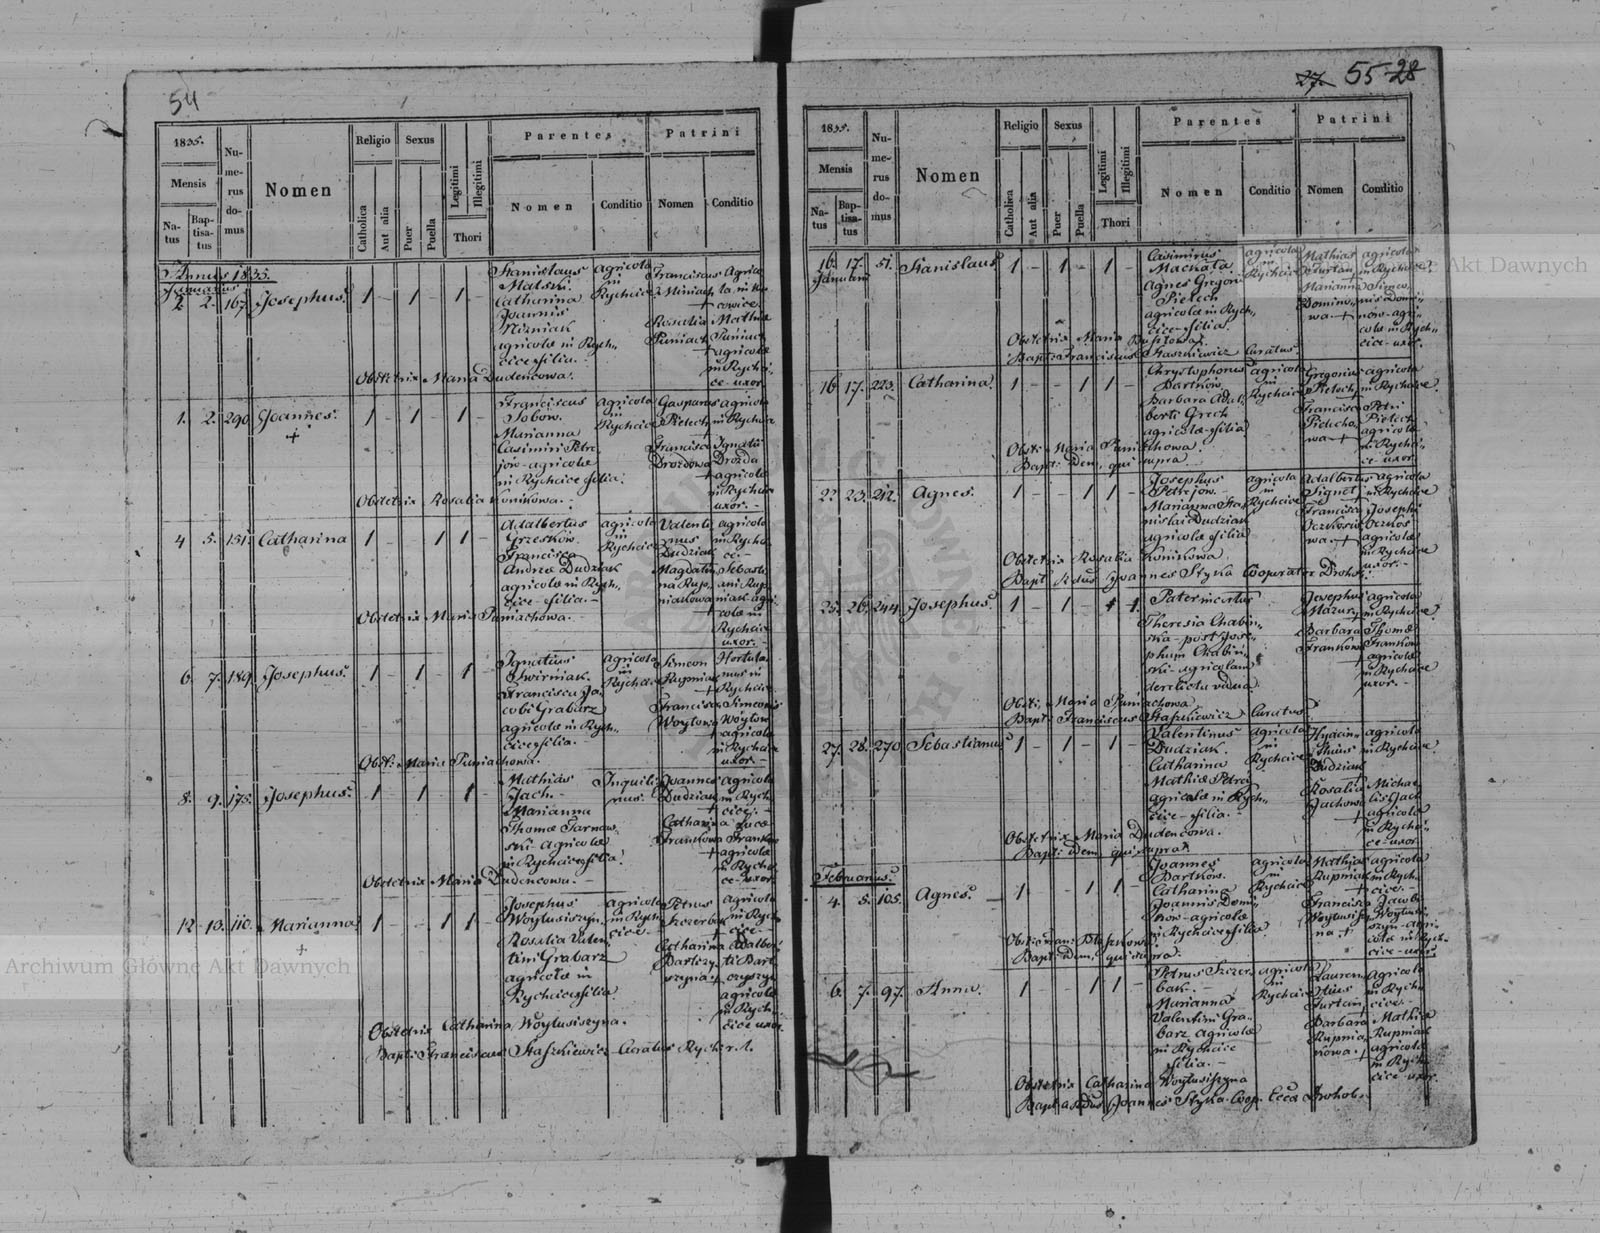 54
1835.
Mensis
Na-
tus
Bap-
tisa-
tus
Nu-
me-
rus
do-
mus
Nomen
Religio
Catholica
Aut alia
Sexus
Puer
Puella
Legitimi
Illegitimi
Thori
Parentes
Nomen
Conditio
Patrini
Nomen
Conditio
Annus 1835.
Januarius
2 2. 167. Josephus. 1 - 1 - 1 -
Stanislaus
Malski.
Catharina
Joannis
agricola in Rych„
cice filia.
Agricola
in
Rychcice
Franciscus
Rosalia
Puniach
Agrico
Mathiæ
Puniach
agricolæ
in Rychci„
ce uxor
Obstetrix Maria Dudencowa.
1. 2. 290. Joannes. 1 - 1 - 1 -
+
Franciscus
Marianna
Casimiri Petry
jów agricolæ
in Rychcice filia.
Agricola
in
Rychcice
Gasparus
Pietech
Francisca
Drozdowa
agricola
in Rychcice
Ignatii
Drozda
agricolæ
in Rychcice
uxor.
Obstetrix Rosalia Konikowa.
4 5. 151. Catharina 1 - - 1 1 -
Adalbertus
Grzesków.
Francisca
Andreæ Dudziak
agricolæ in Rych„
cice filia.
agricola
in
Rychcice
Valenti
nus
Dudziak
Magdale
na Rup„
niakowa
agricola
in Rychci
ce.
Sebasti
ani Rup„
niak agri
colæ in
Rychcice
uxor.
Obstetrix Maria Puniachowa.
6. 7. 189. Josephus. 1 - 1 - 1 -
Ignatius
Francisca Ja„
cobi Grabarz
agricolæ in Rych„
cice filia.
agricola
in
Rychcice
Simeon
Rupniak
Francisca
Woytowa
Hortula
nus in
Rychcice
Simeonis
Woytów
agricolæ
in Rychcice
uxor.
Obst: Maria Puniachowa.
8. 9. 175. Josephus. 1 - 1 - 1 -
Mathias
Jach.
Marianna
Thomæ Tarnow„
ski agricolæ
in Rychcice filia.
Inquili
nus.
Joannes
Dudziak
Catharina
Frankowa
Agricola
in Rych
cice.
Lucæ
Franków
agricolæ
in Rychci
ce uxor
Obstetrix Maria Dudencowa.
12. 13. 110. Marianna 1 - - 1 1 -
+
Josephus
Woytusiszyn.
Rosalia Valen„
tini Grabarz
agricolæ in
Rychcice filia.
agricola
in Rych
cice.
Petrus
Szczerbak
Catharina
Bartczy
szyna
Agricola
in Rych
cice.
Adalber„
ti Bart
czyszyn
agricolæ
in Rych„
cice uxor.
Obstetrix Catharina Woytusiszyna.
Bapt: Franciscus Staszkiewicz Curatus Rychc. r. l.
27. 55 28
1835.
Mensis
Na-
tus
Bap-
tisa-
tus
Nu-
me-
rus
do-
mus
Nomen
Religio
Catholica
Aut alia
Sexus
Puer
Puella
Legitimi
Illegitimi
Thori
Parentes
Nomen
Conditio
Patrini
Nomen
Conditio
16. 17. 51. Stanislaus 1 - 1 - 1 -
Casimirus
Mackała
Agnes Gregorii
Pietech
agricolæ in Rych„
cice filia.
agricola
in
Rychcice
Mathias
Furtan
Marianna
Domino„
wa
agricola
in Rychcice
Simeo„
nis Domi„
nów agri„
colæ in Rych„
cice uxor.
Bapt: Franciscus Staszkiewicz Curatus
16 17. 223. Catharina. 1 - - 1 1 -
Chrystophorus
Bartków.
Barbara Adal„
berti Grech
agricolæ filia
agricola
in
Rychcice
Gregorius
Pietech
Francisca
Pietecho
wa
agricola
in Rychcice
Petri
Pietech
agricolæ
in Rychci„
ce uxor
Obst: Maria Puniachowa.
Bapt: idem, qui supra.
22. 23. 212. Agnes. 1 - - 1 1 -
Josephus
Petryjow.
Marianna Sta„
nislai Dudziak
agricolæ filia
agricola
in
Rychcice
Adalbertus
Signet
Francisca
wa
agricola
in Rychcice
Josephi
agricolæ
in Rychcice
uxor.
Obstetrix Rosalia Konikowa.
Bapt: Rdus Joannes Styka Cooperator Drohob:
25. 26. 244. Josephus. 1 - 1 - 1 1.
Pater incertus
Theresia Chabin„
ska post Jose„
phum Chabin„
ski agricolam
derelicta vidua
Josephus
Mazur
Barbara
Franków
agricola
in Rychcice
Thomæ
Franków
agricolæ
in Rychcice
uxor.
Obst: Maria Puniachowa.
Bapt: Franciscus Staszkiewicz Curatus.
27. 28. 270. Sebastianus 1 - 1 - 1 -
Valentinus
Dudziak.
Catharina
Mathiæ Petra
agricolæ in Rych„
cice filia.
agricola
in
Rychcice
Hyacin„
thus
Dudziak
Rosalia
Jachowa
agricola
in Rychcice
Michae
lis Jach
agricolæ
in Rychci„
ce uxor.
Obstetrix Maria Dudencowa.
Bapt: idem qui supra
Februarius.
4. 5. 105. Agnes. 1 - - 1 1 -
Joannes
Bartków.
Catharina
Joannis Domi„
nów agricolæ
in Rychcice filia
agricola
in
Rychcice
Mathias
Rupniak
Francisca
Woytusiszy
na
agricola
in Rych„
cice.
Jacobi
Woytusi„
szyn agri„
colæ in Rych„
cice uxor
Bapt: idem, qui supra.
6. 7. 97. Anna. 1 - - 1 1 -
Petrus Szczer„
bak.
Marianna
Valentini Gra„
barz agricolæ
in Rychcice
filia.
agricola
in
Rychcice
Lauren
tius
Furtan
Barbara
Rupnia
kowa.
Agricola
in Rych„
cice.
Mathiæ
Rupniak
agricolæ
in Rych„
cice uxor.
Obstetrix Catharina Woytusiszyna
Bapt: Rdus Joannes Styka Coop. Drohob.
Archiwum Główne Akt Dawnych
Akt Dawnych